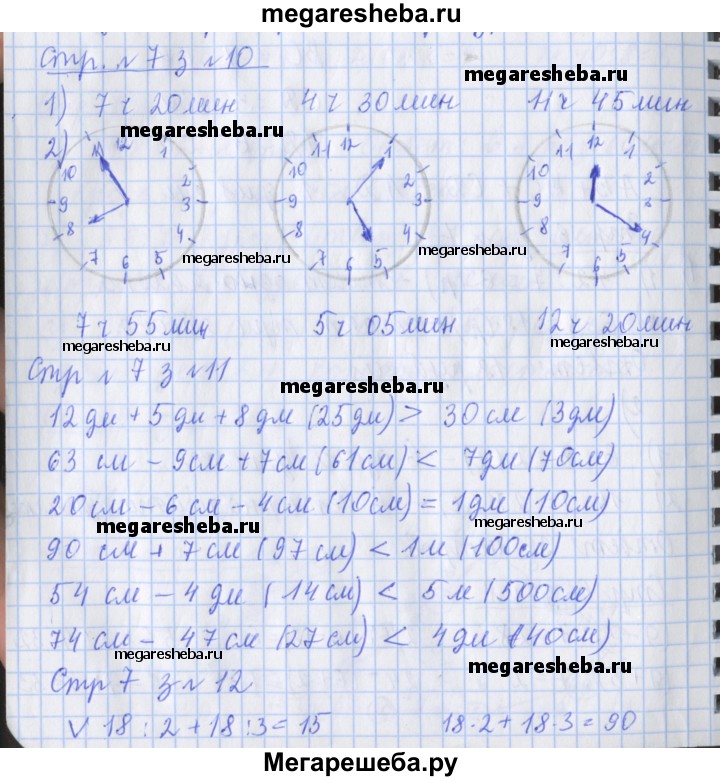 megaresheba.ru
Стр. №7 з №10
megaresheba.ru
1) 7 ч 20 мин 4 ч 30 мин 11 ч 45 мин
megaresheba.ru
2)
11 12 1 2 3 4 5 6 7 8 9 10
11 12 1 2 3 4 5 6 7 8 9 10
12 1 2 3 4 5 6
megaresheba.ru megaresheba.ru megaresheba.ru
7 ч 55 мин 5 ч 05 мин 12 ч 20 мин
megaresheba.ru megaresheba.ru
Стр №7 з №11
megaresheba.ru
12 дм + 5 дм + 8 дм (25 дм) > 30 см (3 дм)
63 см - 9 см + 7 см (61 см) < 7 дм (70 см)
20 см - 6 см - 4 см (10 см) = 1 дм (10 см)
megaresheba.ru megaresheba.ru
90 см + 7 см (97 см) < 1 м (100 см)
54 см - 4 дм (14 см) < 5 м (500 см)
74 см - 47 см (27 см) < 4 дм (40 см)
megaresheba.ru megaresheba.ru
Стр 7 з №12
V 18 : 2 + 18 : 3 = 15 18 · 2 + 18 · 3 = 90
Мегарешеба.ру